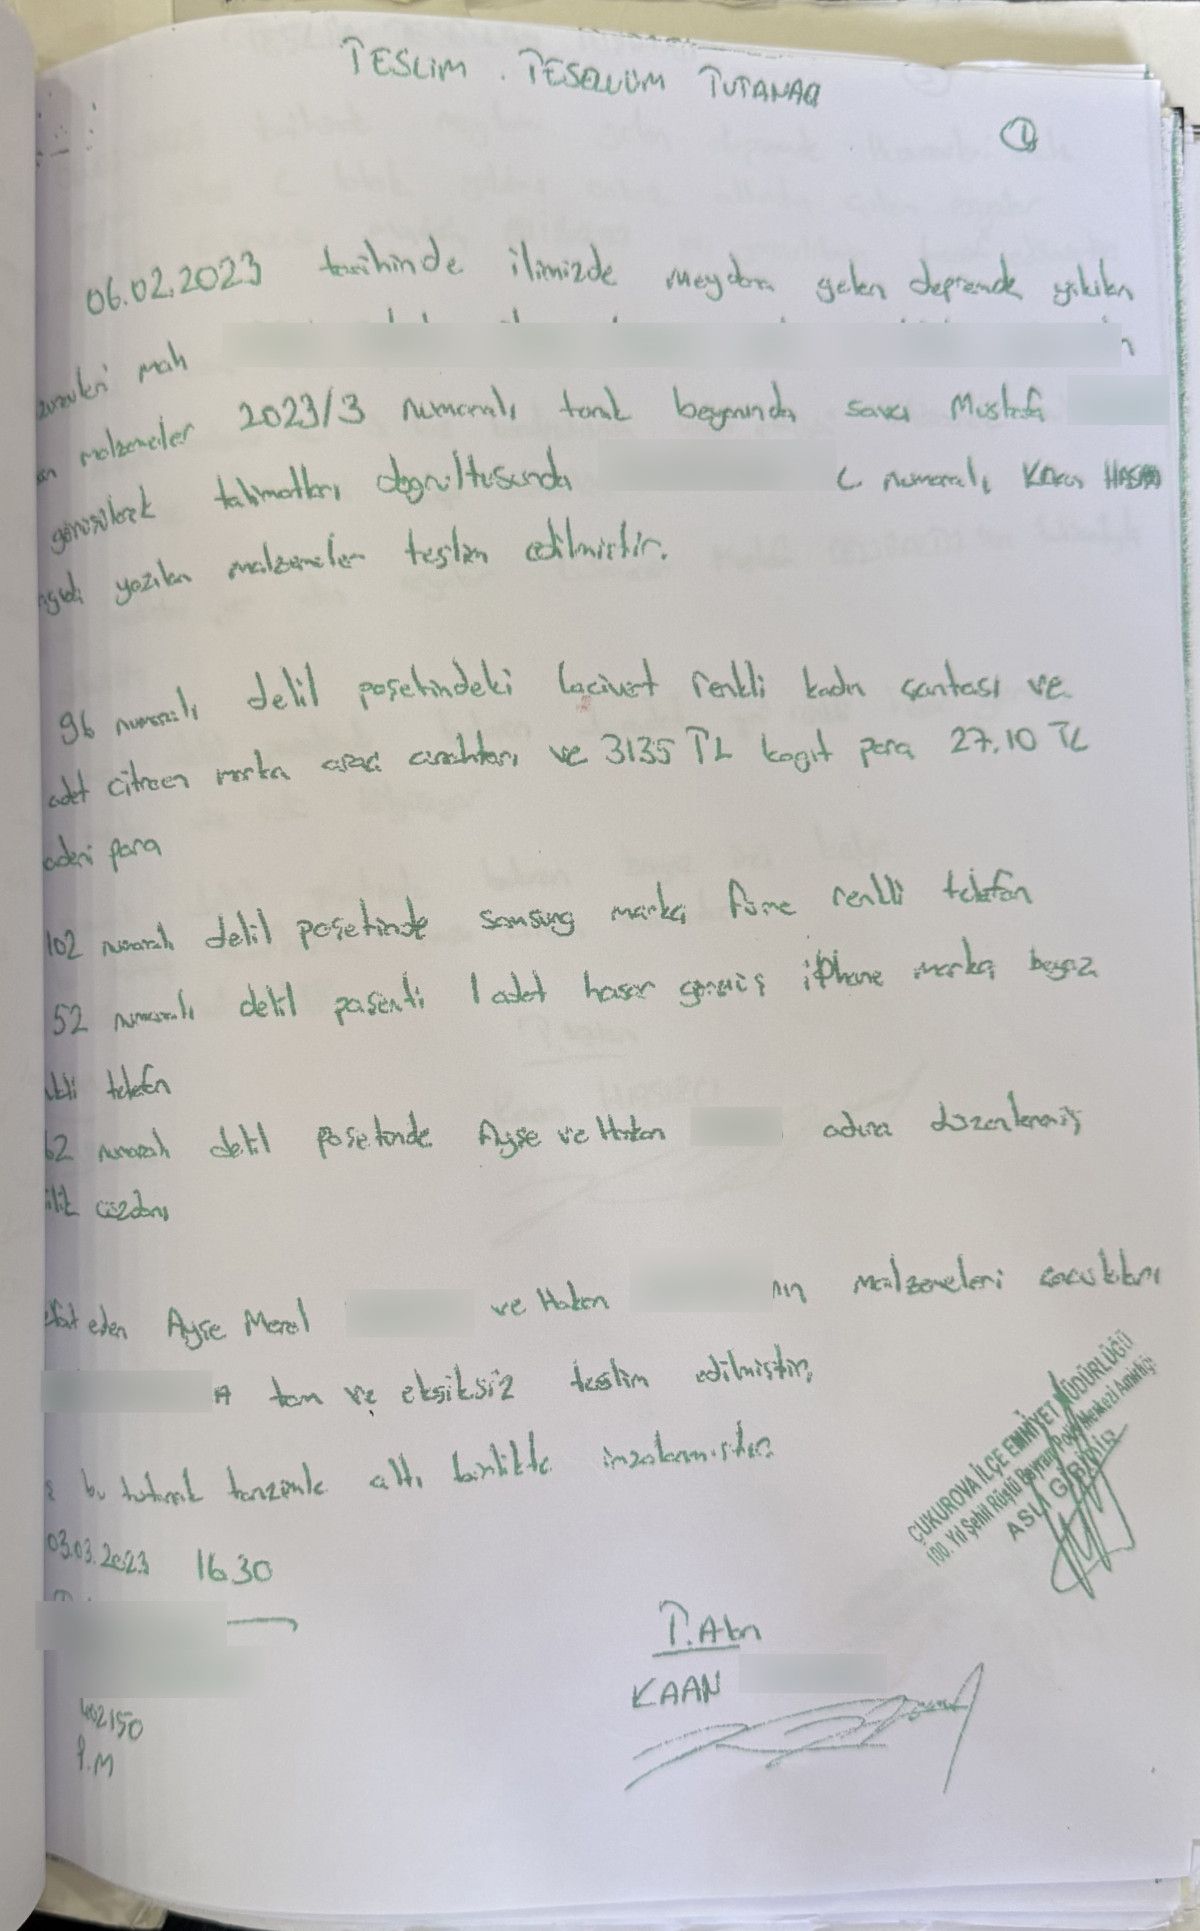 TESLİM . TESELLÜM TUTANAĞI
1
06.02.2023 tarihinde ilimizde meydan gelen depremde yıkılan
mah
malzemeler 2023/3 numaralı tanık beyanında savcı Mustafa
görüşülerek talimatları doğrultusunda numaralı
yazılan malzemeler teslim edilmiştir.
96 numaralı delil poşetindeki lacivert renkli kadın çantası ve
adet citroen marka araç anahtarı ve 3135 TL kağıt para 27.10 TL
para
102 numaralı delil poşetinde samsung marka füme renkli telefon
52 numaralı delil poşeti 1 adet hasar görmüş iphone marka beyaz
telefon
62 numaralı delil poşetinde Ayşe ve Hakan adına düzenlenmiş
cüzdanı
eden Ayşe Meral ve Hakan nın malzemeleri çocukları
A tam ve eksiksiz teslim edilmiştir.
bu tutanak tanzimle altı birlikte imzalanmıştır.
03.03.2023 16.30
T.Alan
KAAN
402150
P.M
ÇUKUROVA İLÇE EMNİYET MÜDÜRLÜĞÜ
100. Yıl Şehit Rüştü Bayram Polis Merkezi Amirliği
ASLI GİBİDİR